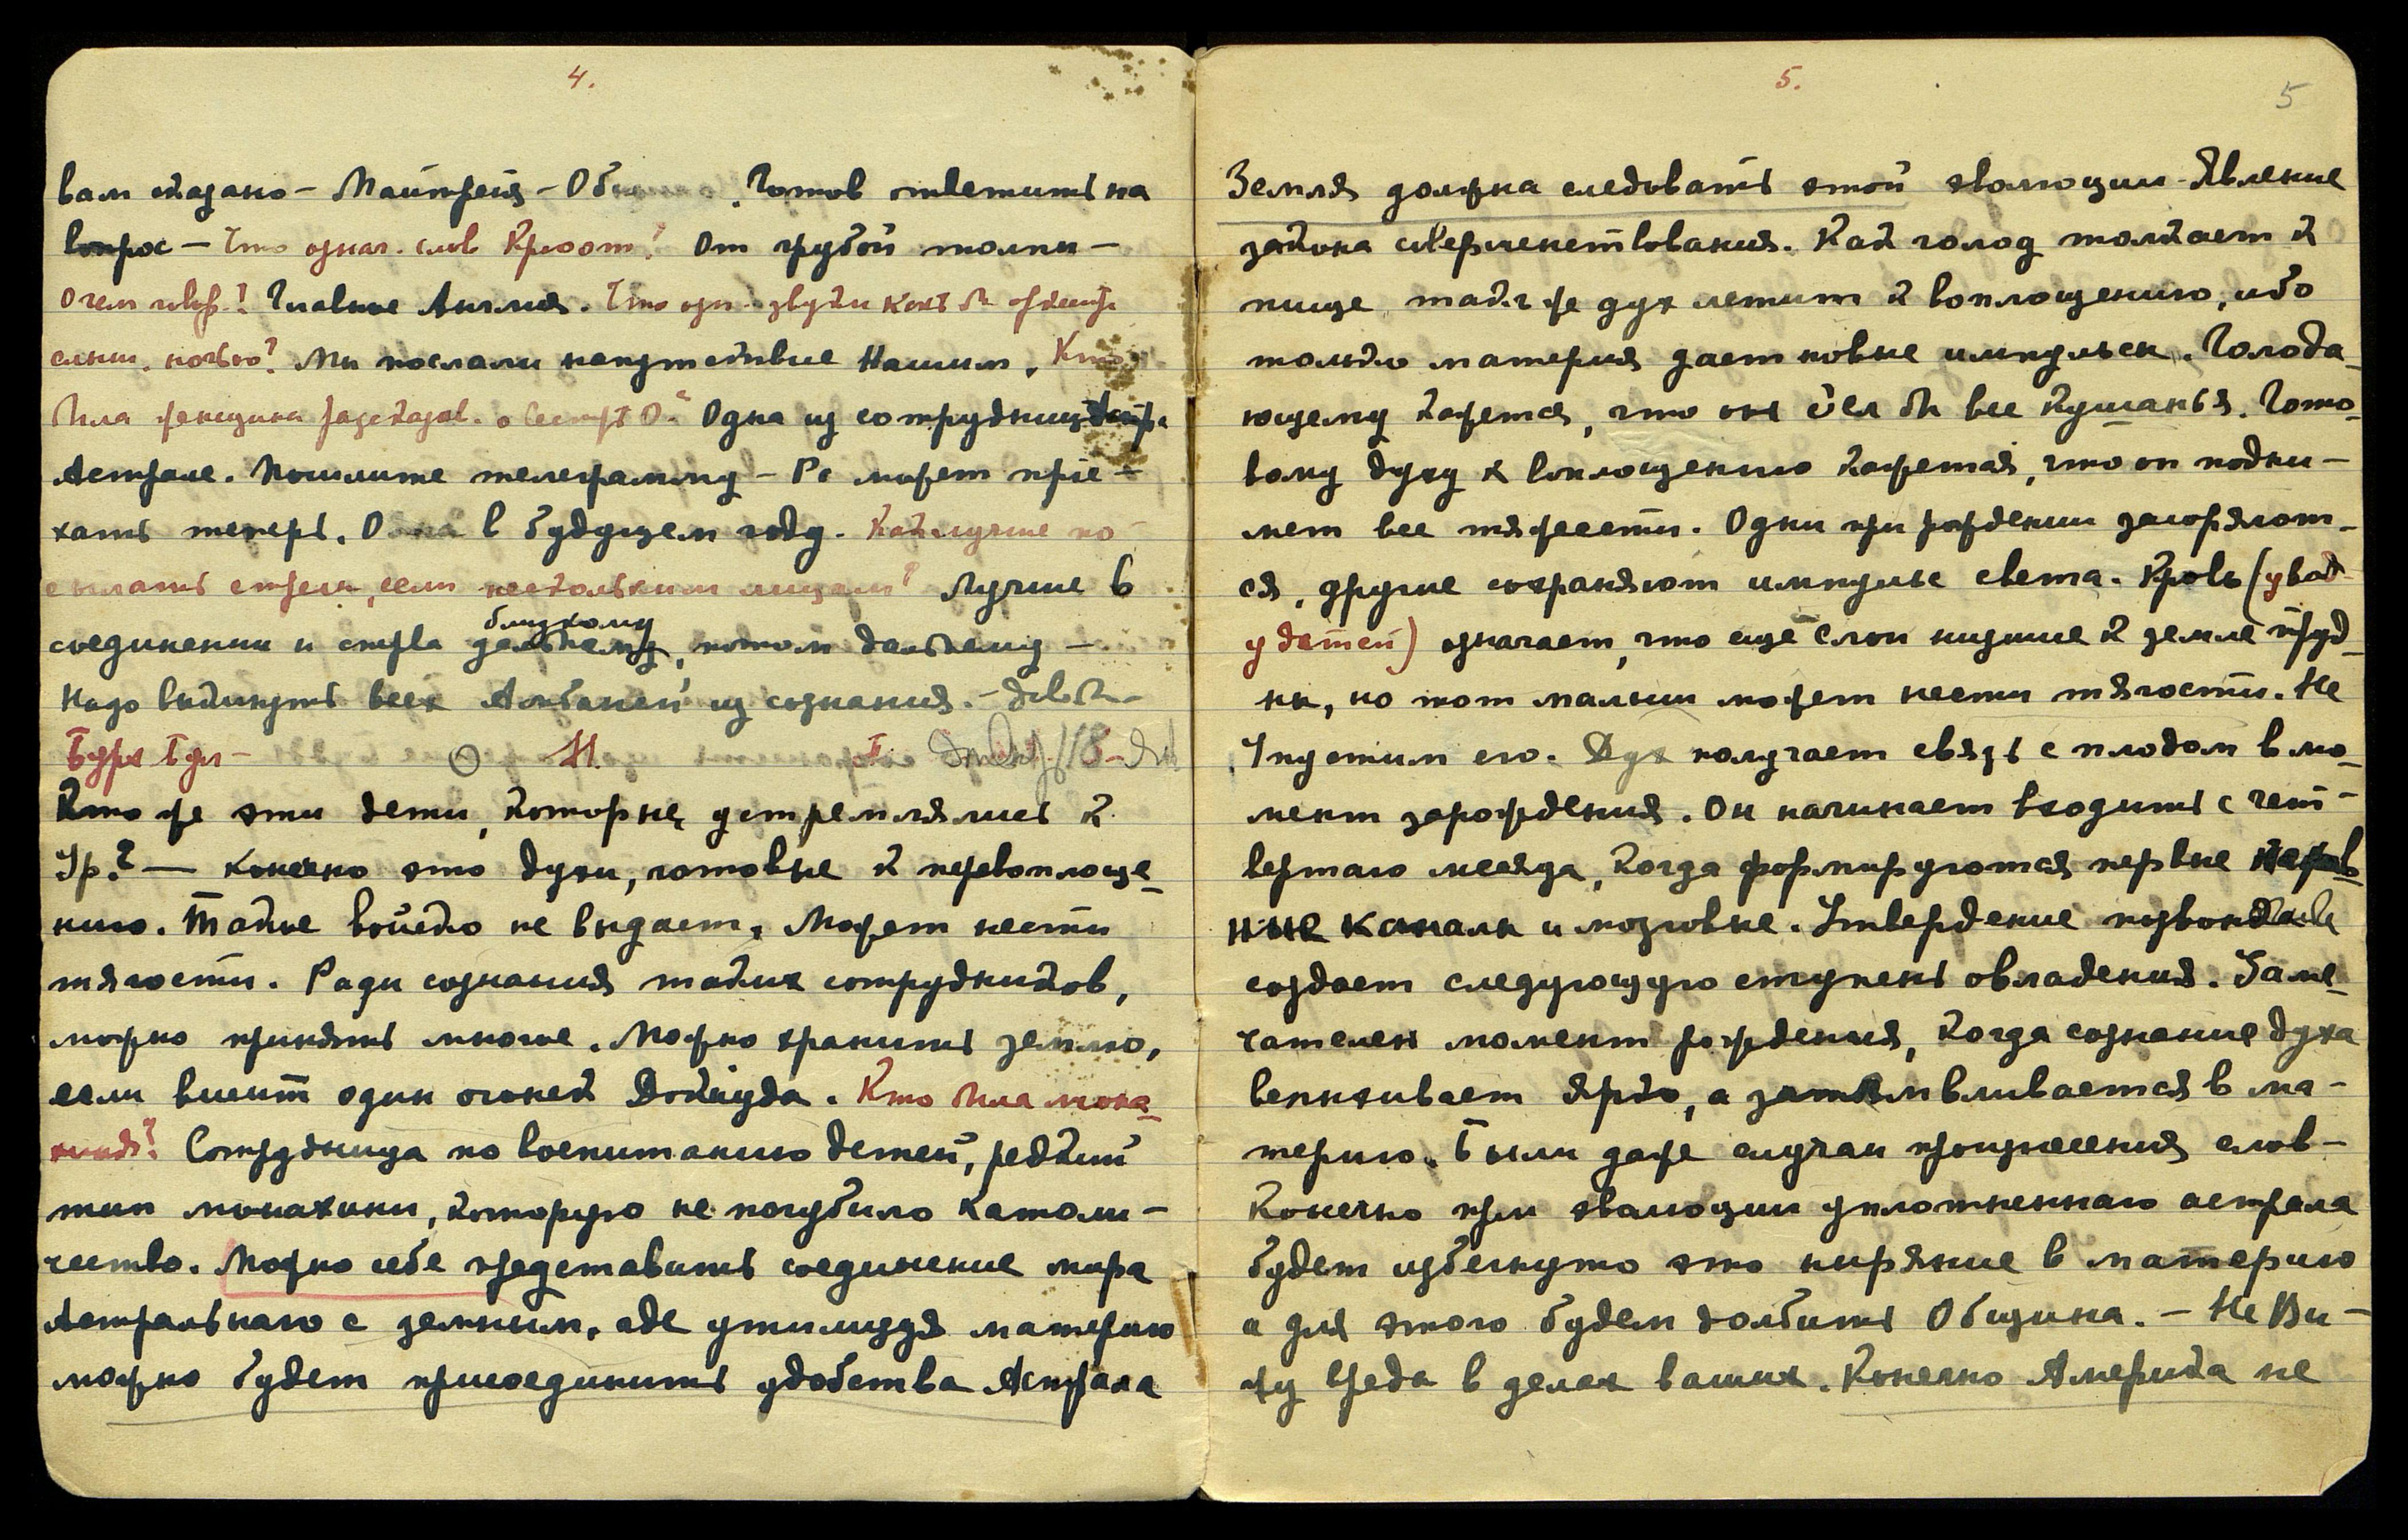 4.
вам сказано – Майтрейя – Об . Готов ответить на
вопрос – Что означ. слов Крюот? От грубой толпы –
О чем говор.? Главное Англия. Что озн. звуки
слыш. ночью? Мы послали напутствие Нашим. Кто
была женщина разсказыв. о Сестре О.? Одна из сотрудниц
Астрале. Пошлите телеграмму – может прiе-
хать теперь. О в будущем году. Как лучше по-
сылать стрелы, если нескольким лицам? Лучше в
соединении и сперва
близкому
, потом дальнему –
Надо выкинуть всех из сознания. – Довол.
Бурх Бул – М.
Кто же эти дети, которые устремлялись к
Ур.? – Конечно это духи, готовые к перевоплоще-
нию. Такие войско не выдает. Может нести
тягости. Ради сознания таких сотрудников,
можно принять многое. Можно хранить землю,
если висит один огонек Докиуда. Кто была мона-
хиня? Сотрудница по воспитанию детей, редкий
тип монахини, которую не погубило католи-
чество. Можно себе представить соединение мира
Астральнаго с земным, где утилизуя материю
можно будет присоединить удобства Астрала
5.
5
Земля должна следовать этой эволюции – Явление
закона совершенствования. Как голод толкает к
пище так же дух летит к воплощению, ибо
только материя дает новые импульсы. Голода-
ющему кажется, что он съел бы все кушанья. Гото-
вому духу к воплощению кажется, что он подни-
мет все тяжести. Одни при рождении загоряют-
ся, другие сохраняют импульс света. Кровь (увид.
у детей) означает, что еще слои низшие к земле труд-
ны, но тот малыш может нести тягости. Не
Упустим его. Дух получает связь с плодом в мо-
мент зарождения. Он начинает входить с чет-
вертаго месяца, когда формируются первые нерв-
ные каналы и мозговые. Утвержденiе позвоночника
создает следующую ступень овладения. Заме-
чателен момент рождения, когда сознание духа
вспыхивает ярко, а затем вливается в ма-
терию. Были даже случаи произнесения слов –
Конечно при эволюции уплотненнаго астрала
будет избегнуто это ныряние в материю
и для этого будем долбить Община. – Не Ви-
жу вреда в делах ваших. Конечно Америка не